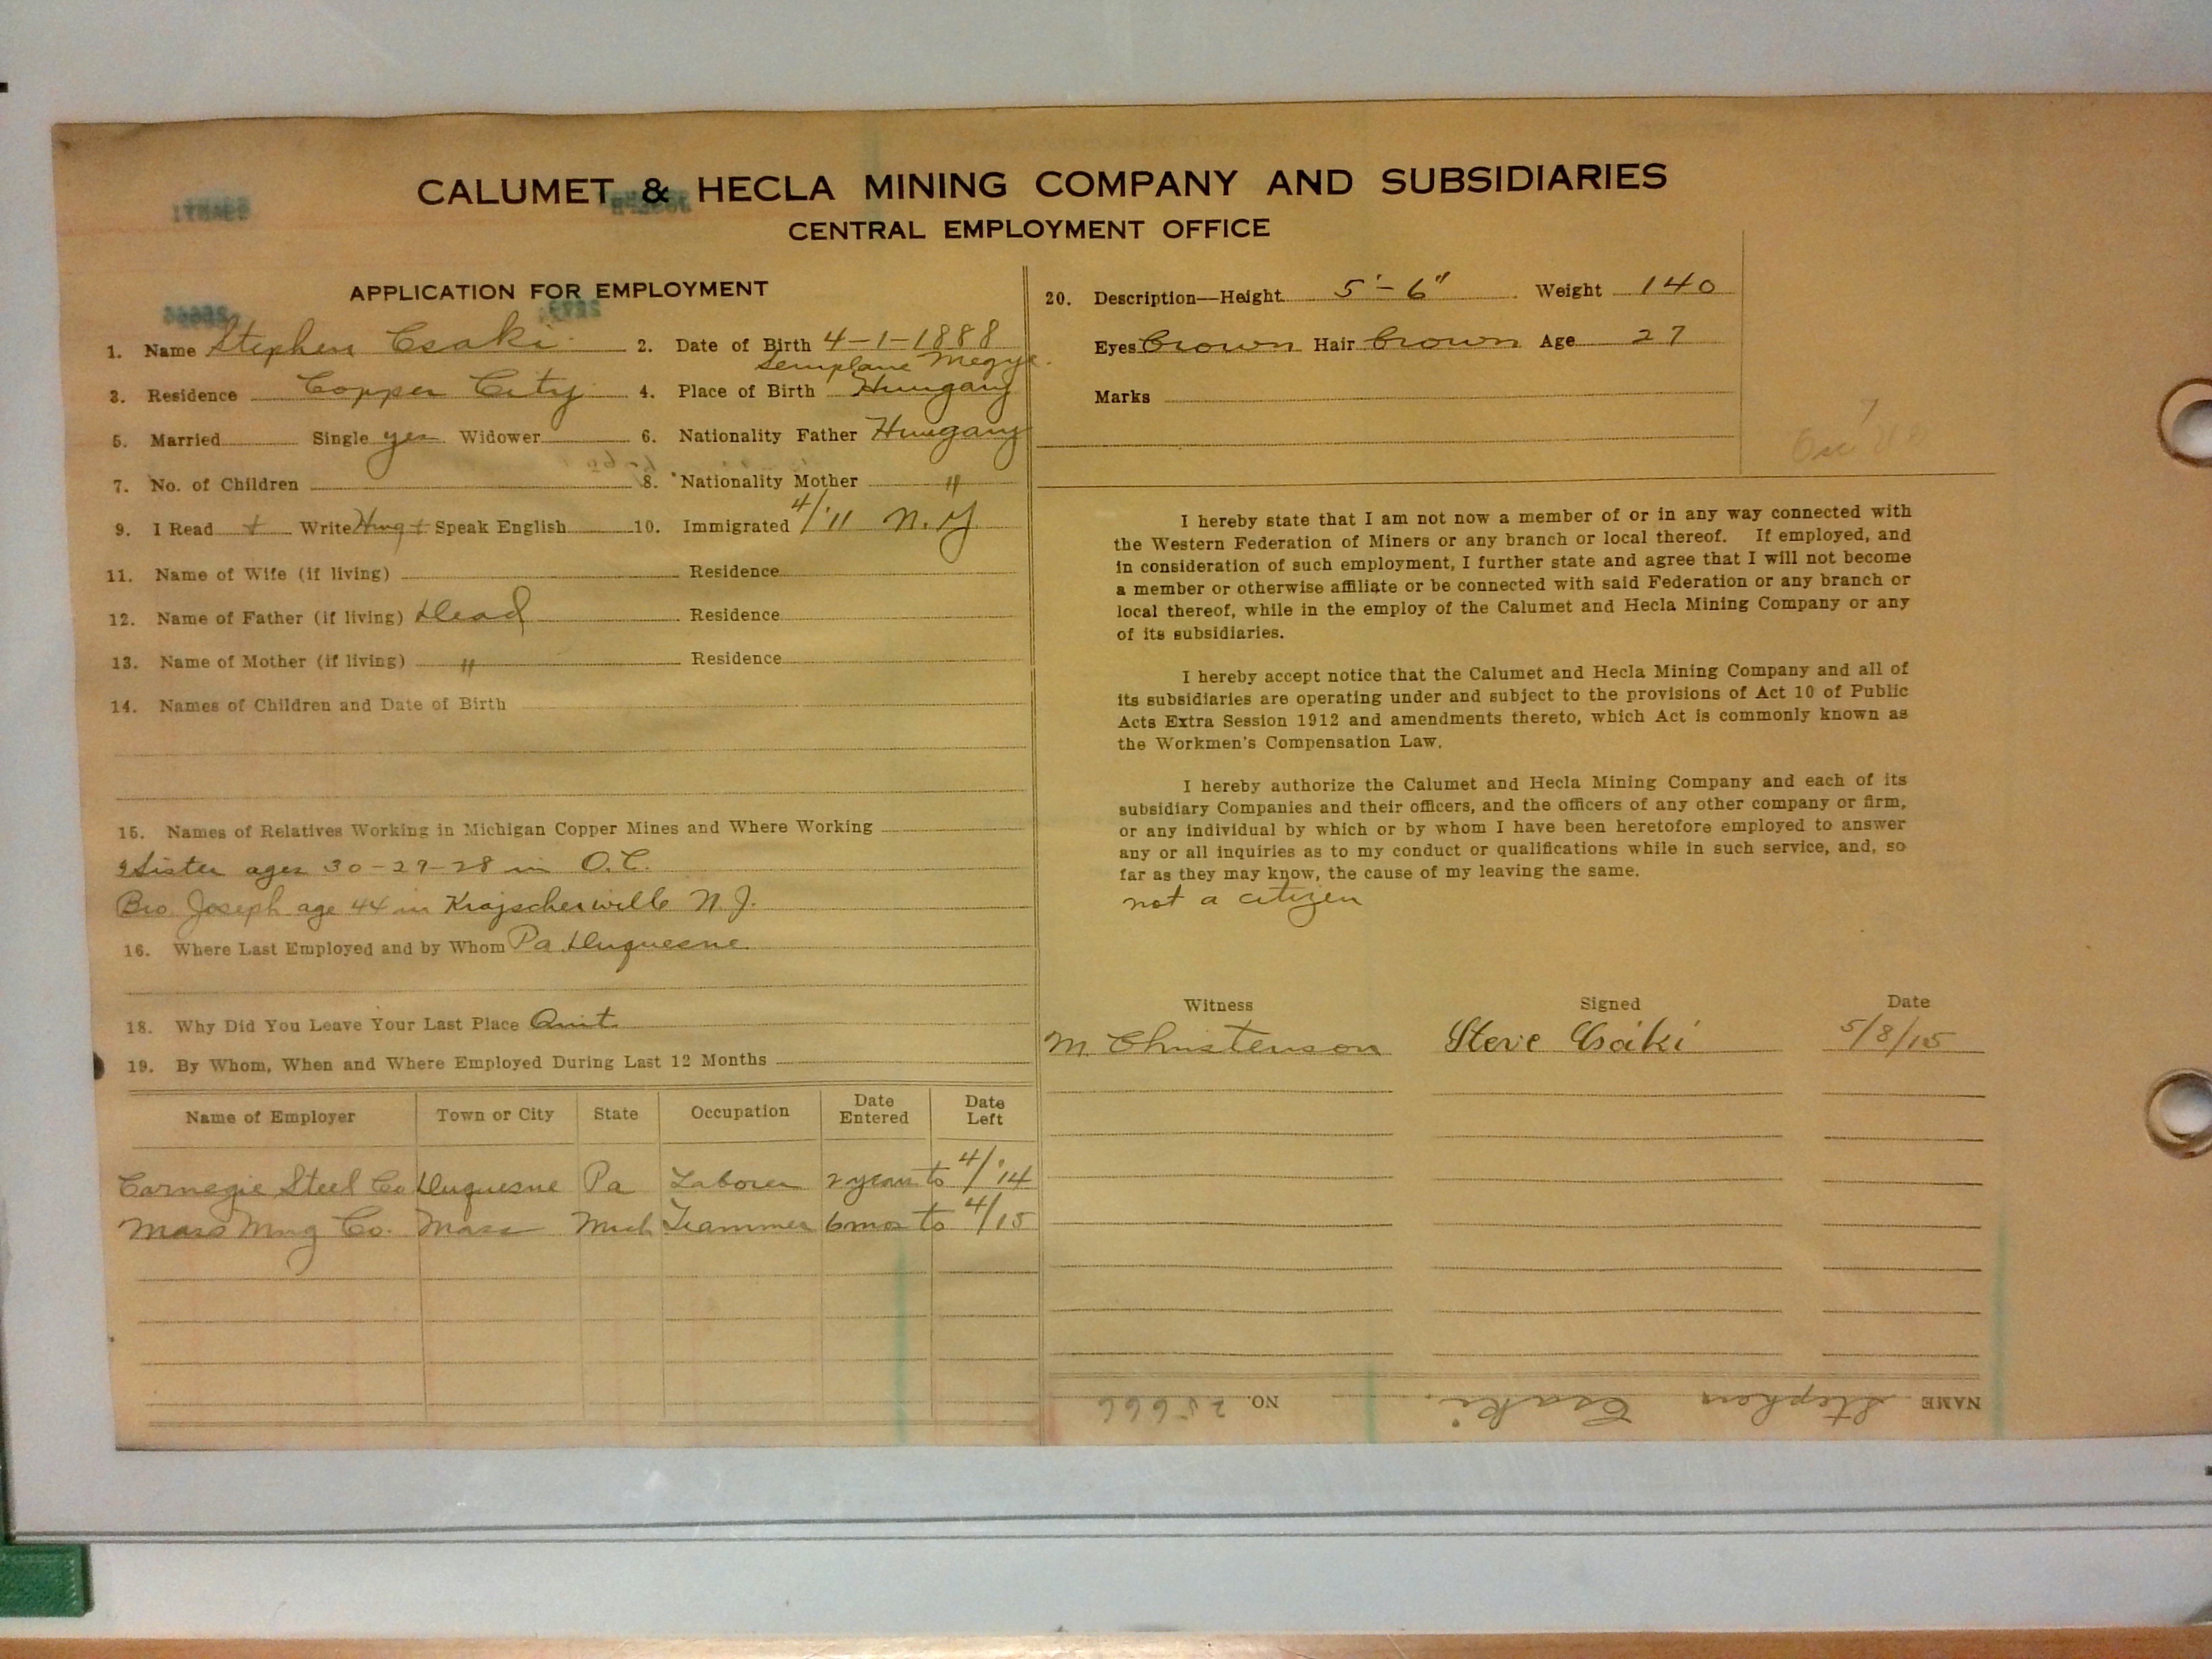 CALUMET & HECLA MINING COMPANY AND SUBSIDIARIES
CENTRAL EMPLOYMENT OFFICE
APPLICATION FOR EMPLOYMENT
1. Name Stephen Csaki 2. Date of Birth 4-1-1888
Megye
3. Residence Copper City 4. Place of Birth Hungary
5. Married Single yes Widower 6. Nationality Father Hungary
7. No. of Children 8. Nationality Mother "
9. I Read + Write Hung + Speak English 10. Immigrated 4/'11 N.Y
11. Name of Wife (if living) Residence
12. Name of Father (if living) Dead Residence
13. Name of Mother (if living) " Residence
14. Names of Children and Date of Birth
15. Names of Relatives Working in Michigan Copper Mines and Where Working
Sister ages 30-29-28 in O.C.
Bro Joseph age 44 in N.J.
16. Where Last Employed and by Whom Pa Duquesne
18. Why Did You Leave Your Last Place Quit
19. By Whom, When and Where Employed During Last 12 Months
Name of Employer Town or City State Occupation Date Entered Date Left
Carnegie Steel Co Duquesne Pa Laborer 2 years to 4/'14
Mass Mng Co. Mass Mich Trammer 6 mos to 4/15
20. Description—Height 5'-6" Weight 140
Eyes brown Hair brown Age 27
Marks
I hereby state that I am not now a member of or in any way connected with
the Western Federation of Miners or any branch or local thereof. If employed, and
in consideration of such employment, I further state and agree that I will not become
a member or otherwise affiliate or be connected with said Federation or any branch or
local thereof, while in the employ of the Calumet and Hecla Mining Company or any
of its subsidiaries.
I hereby accept notice that the Calumet and Hecla Mining Company and all of
its subsidiaries are operating under and subject to the provisions of Act 10 of Public
Acts Extra Session 1912 and amendments thereto, which Act is commonly known as
the Workmen's Compensation Law.
I hereby authorize the Calumet and Hecla Mining Company and each of its
subsidiary Companies and their officers, and the officers of any other company or firm,
or any individual by which or by whom I have been heretofore employed to answer
any or all inquiries as to my conduct or qualifications while in such service, and, so
far as they may know, the cause of my leaving the same.
not a citizen
Witness Signed Date
M. Christenson Steve Csáki 5/8/15
NAME Stephen Csaki. NO. 25666